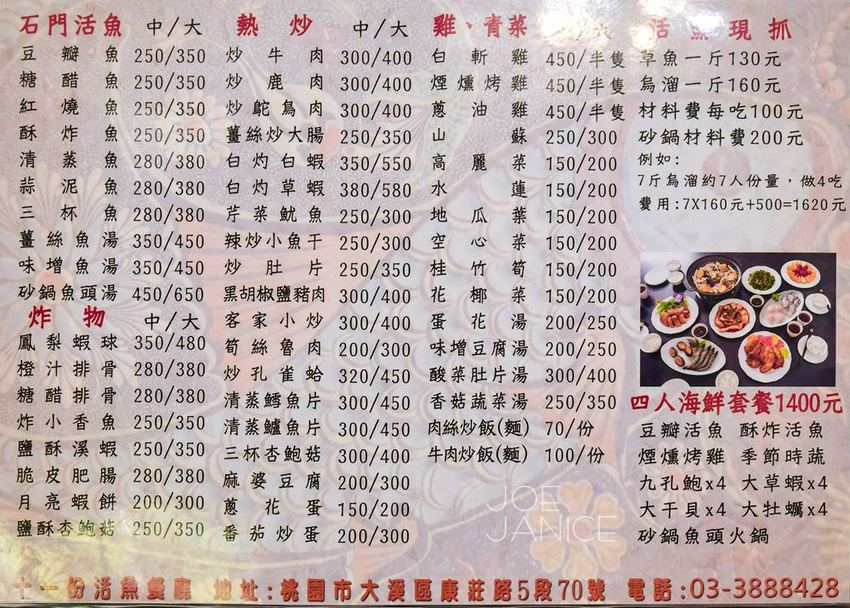 石門活魚 中/大
豆瓣魚 250/350
糖醋魚 250/350
紅燒魚 250/350
酥炸魚 250/350
清蒸魚 280/380
蒜泥魚 280/380
三杯魚 280/380
薑絲魚湯 350/450
味增魚湯 350/450
砂鍋魚頭湯 450/650
炸物 中/大
鳳梨蝦球 350/480
橙汁排骨 280/380
糖醋排骨 280/380
炸小香魚 250/350
鹽酥溪蝦 250/350
脆皮肥腸 280/380
月亮蝦餅 200/300
鹽酥杏鮑菇 250/350
熱炒 中/大
炒牛肉 300/400
炒鹿肉 300/400
炒鴕鳥肉 300/400
薑絲炒大腸 250/350
白灼白蝦 350/550
白灼草蝦 380/580
芹菜魷魚 250/300
辣炒小魚干 250/300
炒肚片 250/350
黑胡椒鹽豬肉 300/400
客家小炒 300/400
筍絲魯肉 200/300
炒孔雀蛤 320/450
清蒸鱈魚片 300/450
清蒸鱸魚片 300/450
三杯杏鮑菇 300/400
麻婆豆腐 200/300
蔥花蛋 150/200
番茄炒蛋 200/300
雞、青菜 /大
白斬雞 450/半隻
煙燻烤雞 450/半隻
蔥油雞 450/半隻
山蘇 250/300
高麗菜 150/200
水蓮 150/200
地瓜葉 150/200
空心菜 150/200
桂竹筍 150/200
花椰菜 150/200
蛋花湯 200/250
味增豆腐湯 200/250
酸菜肚片湯 300/400
香菇蔬菜湯 250/350
肉絲炒飯(麵) 70/份
牛肉炒飯(麵) 100/份
活魚現抓
草魚一斤130元
烏溜一斤160元
材料費每吃100元
砂鍋材料費200元
例如:
7斤烏溜約7人份量，做4吃
費用:7X160元+500=1620元
四人海鮮套餐1400元
豆瓣活魚 酥炸活魚
煙燻烤雞 季節時蔬
九孔鮑x4 大草蝦x4
大干貝x4 大牡蠣x4
砂鍋魚頭火鍋
JOE
JANICE
十一份活魚餐廳 地址:桃園市大溪區康莊路5段70號 電話:03-3888428